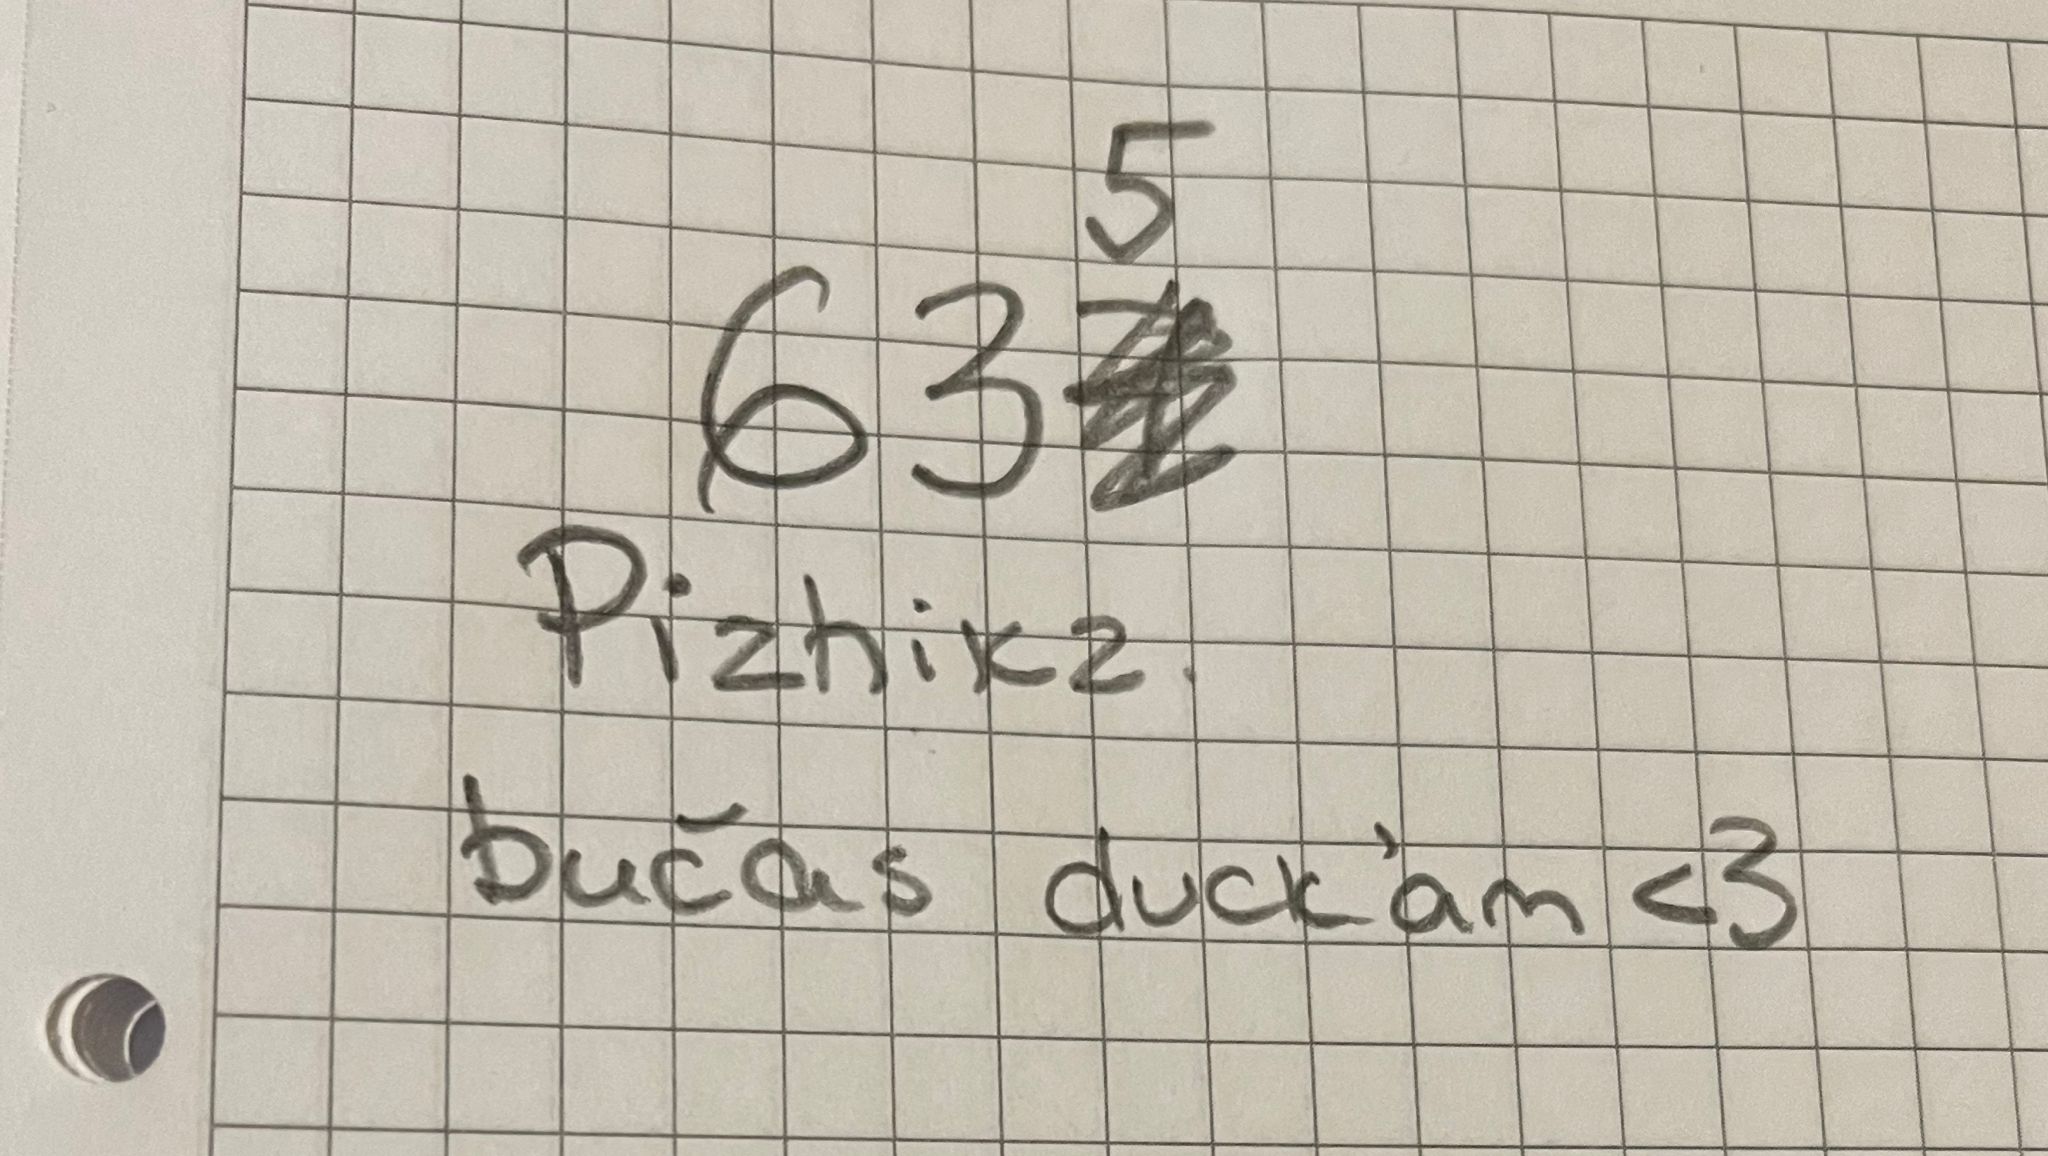 5
63
Pizhikz.
bučas duck'am <3